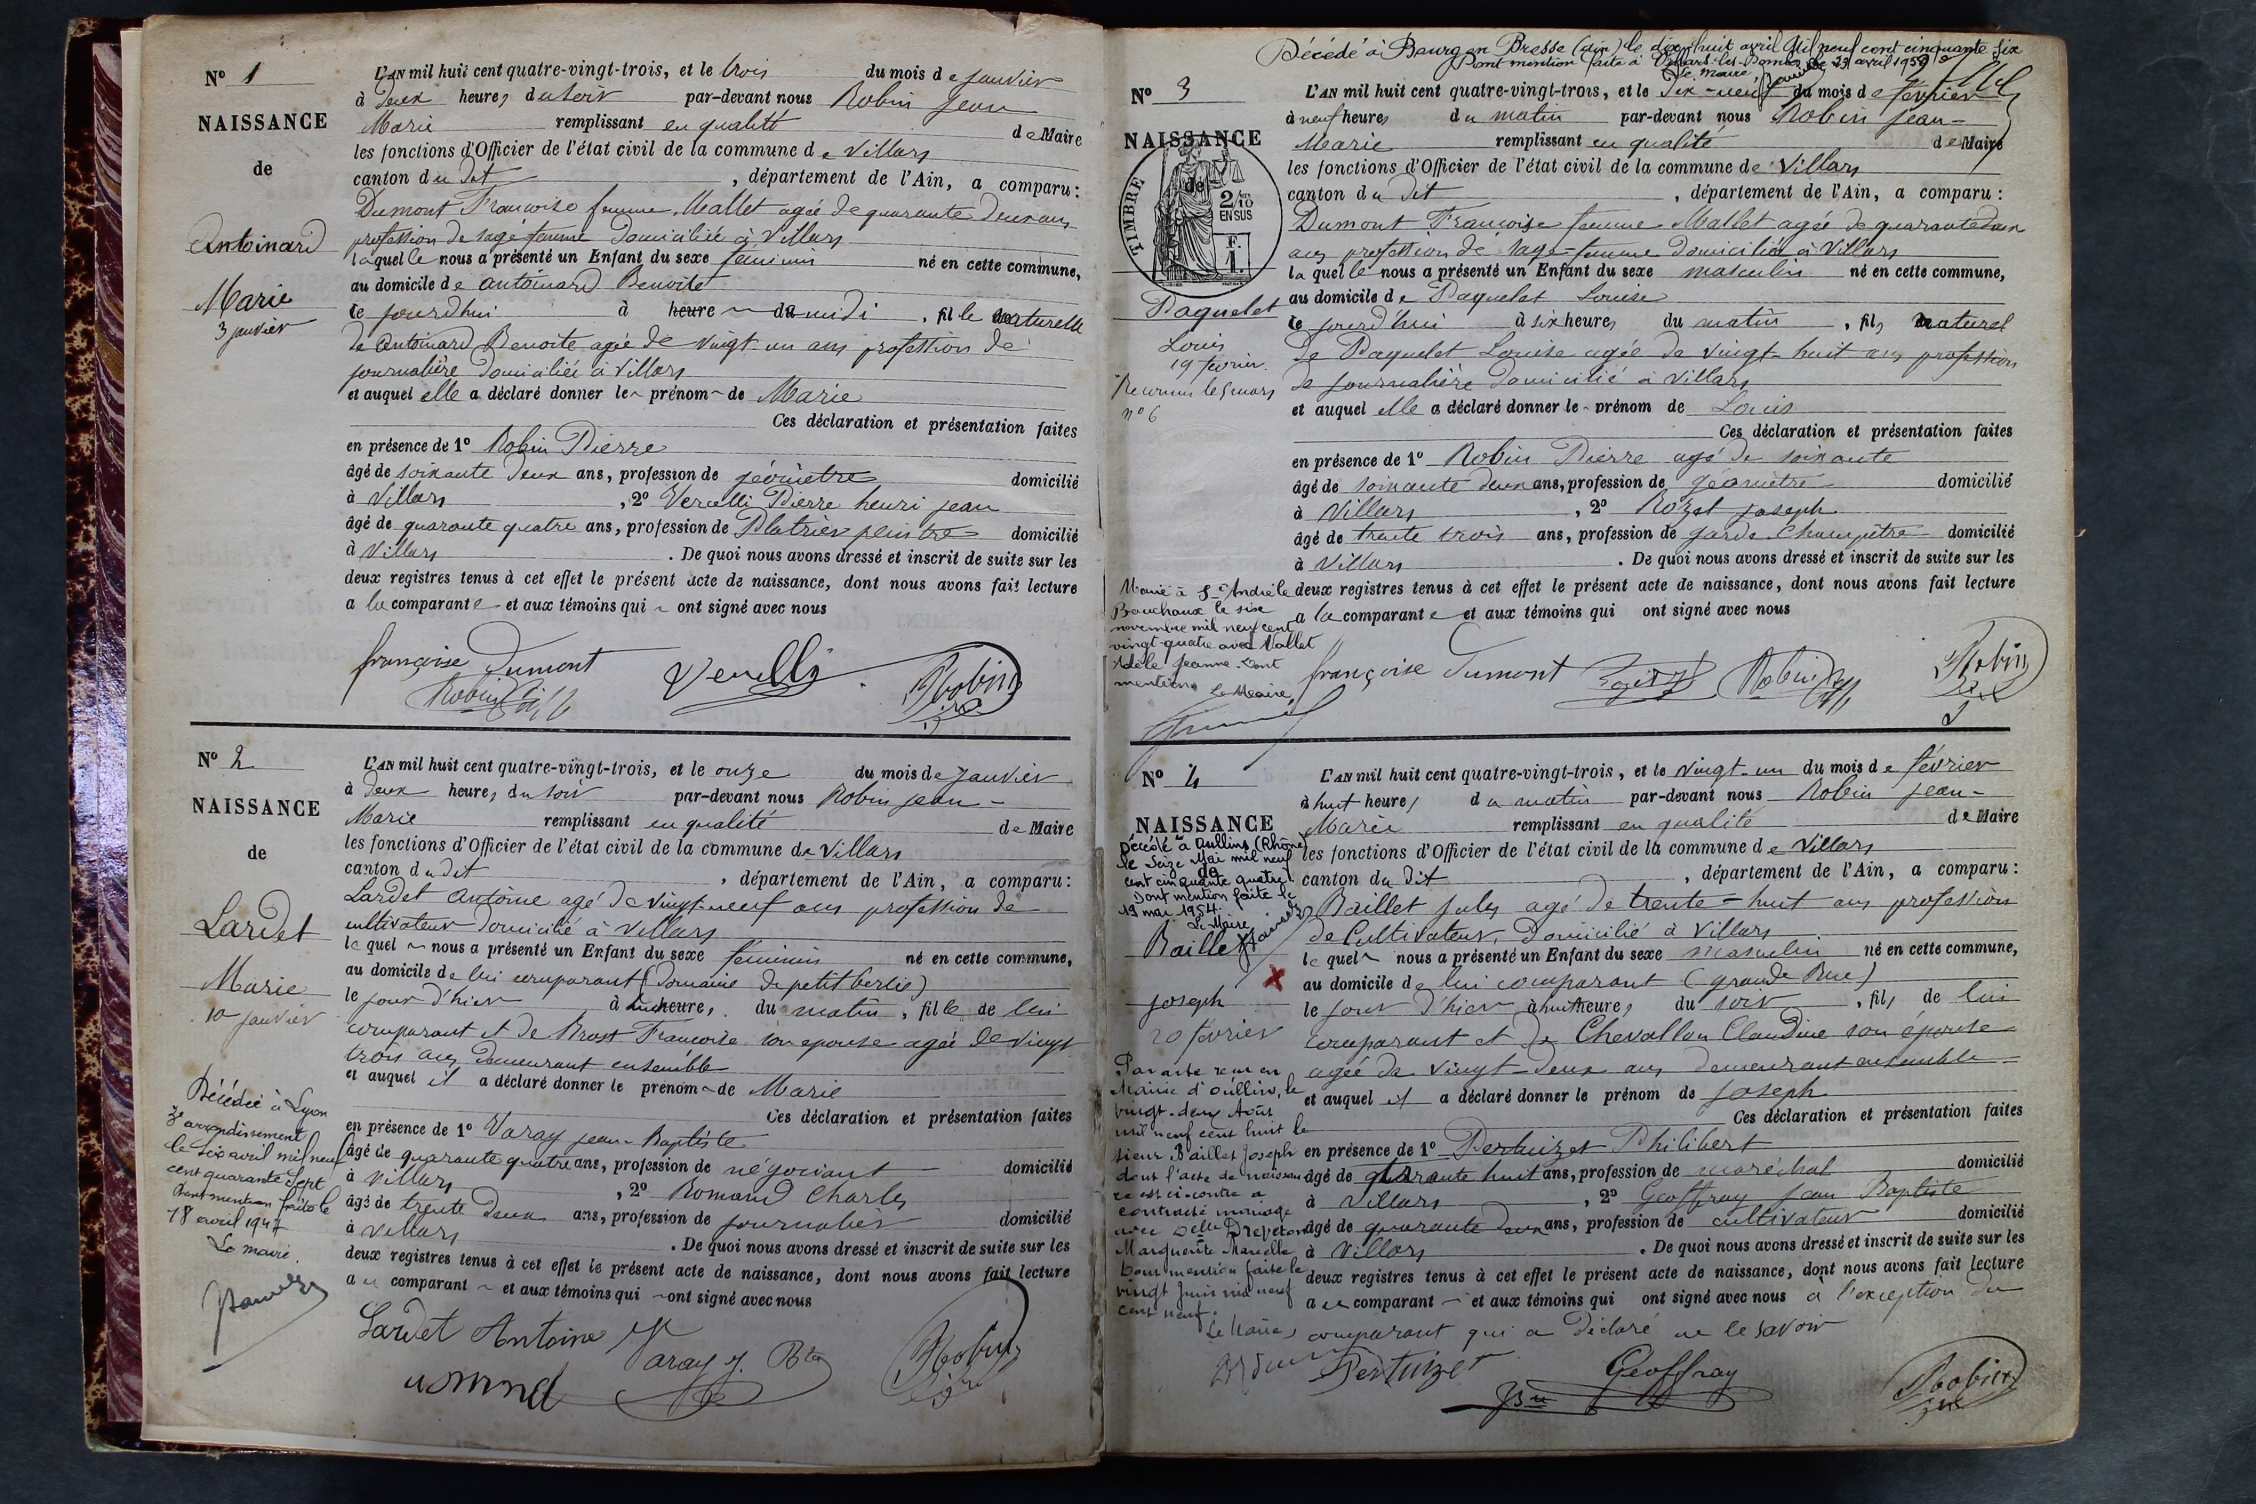 N° 1
NAISSANCE
de
Antoinard
Marie
3 janvier
L'AN mil huit cent quatre-vingt-trois, et le trois du mois de janvier
à deux heures du soir par-devant nous Robin Jean
Marie remplissant en qualité de Maire
les fonctions d'Officier de l'état civil de la commune de Villars
canton du dit, département de l'Ain, a comparu :
Dumont Françoise femme Mallet agée de quarante deux ans
profession de sage femme domiciliée à Villars
laquelle nous a présenté un Enfant du sexe féminin né en cette commune,
au domicile de Antoinard Benoite
le jourd'hui à heure du midi, fille naturelle
de Antoinard Benoite agée de vingt un ans profession de
journalière domiciliée à Villars
et auquel elle a déclaré donner le prénom de Marie
Ces déclaration et présentation faites
en présence de 1° Robin Pierre
âgé de soixante deux ans, profession de géomètre domicilié
à Villars, 2° Vercelli Pierre henri jean
âgé de quarante quatre ans, profession de Platrier peintre domicilié
à Villars. De quoi nous avons dressé et inscrit de suite sur les
deux registres tenus à cet effet le présent acte de naissance, dont nous avons fait lecture
a la comparante et aux témoins qui ont signé avec nous
françoise Dumont Vercelli Robin
Robin
N° 2
NAISSANCE
de
Lardet
Marie
10 janvier
Décédée à Lyon
3e arrondissement
le six avril mil neuf
cent quarante sept
Dont mention faite le
18 avril 1947
Le maire.
L'AN mil huit cent quatre-vingt-trois, et le onze du mois de janvier
à deux heures du soir par-devant nous Robin jean-
Marie remplissant en qualité de Maire
les fonctions d'Officier de l'état civil de la commune de Villars
canton du dit, département de l'Ain, a comparu :
Lardet Antoine agé de vingt-neuf ans profession de
cultivateur domicilié à Villars
lequel nous a présenté un Enfant du sexe féminin né en cette commune,
au domicile de lui comparant (Domaine de petit berlie)
le jour d'hier à heures, du matin, fille de lui
comparant et de Brost Françoise son epouse agée de vingt
trois ans demeurant ensemble
et auquel il a déclaré donner le prénom de Marie
Ces déclaration et présentation faites
en présence de 1° Varay jean-Baptiste
âgé de quarante quatre ans, profession de négociant domicilié
à Villars, 2° Romand Charles
âgé de trente deux ans, profession de journalier domicilié
à Villars. De quoi nous avons dressé et inscrit de suite sur les
deux registres tenus à cet effet le présent acte de naissance, dont nous avons fait lecture
au comparant et aux témoins qui ont signé avec nous
Lardet Antoine Varay J. Bte Robin
Décédé à Bourg en Bresse (Ain) le dix-huit avril Mil neuf cent cinquante six
Dont mention faite à Villars-les-Dombes le 23 avril
Le maire,
N° 3
NAISSANCE
de
TIMBRE
2/10
EN SUS
F.
1.
Paquelet
Louis
19 février.
Reconnu le 5 mars
n° 6
Marié à St André le
Bouchoux le six
novembre mil neuf cent
vingt-quatre avec Vallet
Adèle Jeanne. Dont
mention.
Le Maire
L'AN mil huit cent quatre-vingt-trois, et le dix-neuf du mois de février
à neuf heures du matin par-devant nous Robin jean-
Marie remplissant en qualité de Maire
les fonctions d'Officier de l'état civil de la commune de Villars
canton du dit, département de l'Ain, a comparu :
Dumont Françoise femme Mallet agée de quarante deux
ans profession de sage-femme domiciliée à Villars
laquelle nous a présenté un Enfant du sexe masculin né en cette commune,
au domicile de Paquelet Louise
le jourd'hui à six heures du matin, fils naturel
de Paquelet Louise agée de vingt-huit ans profession
de journalière domicilié à Villars
et auquel elle a déclaré donner le prénom de Louis
Ces déclaration et présentation faites
en présence de 1° Robin Pierre agé de soixante
âgé de soixante deux ans, profession de géomètre domicilié
à Villars, 2° Rozet joseph
âgé de trente trois ans, profession de garde-Champêtre domicilié
à Villars. De quoi nous avons dressé et inscrit de suite sur les
deux registres tenus à cet effet le présent acte de naissance, dont nous avons fait lecture
a la comparante et aux témoins qui ont signé avec nous
françoise Dumont Rozet J Robin Robin
N° 4
NAISSANCE
de
Décédé à Oullins (Rhône)
le Seize Mai mil neuf
cent cinquante quatre.
Dont mention faite le
19 mai 1954.
Le Maire
Baillet
joseph
20 février
Par acte reçu en
Mairie d'Oullins, le
vingt-deux Août
mil neuf cent huit le
sieur Baillet Joseph
dont l'acte de naissan
ce est ci-contre a
contracté mariage
avec Delle Dreveton
Marguerite Marcelle
Dont mention faite le
vingt Juin mil neuf
cent neuf.
Le Maire,
L'AN mil huit cent quatre-vingt-trois, et le vingt-un du mois de février
à huit heures du matin par-devant nous Robin jean-
Marie remplissant en qualité de Maire
les fonctions d'Officier de l'état civil de la commune de Villars
canton du dit, département de l'Ain, a comparu :
Baillet jules agé de trente-huit ans profession
de Cultivateur, domicilié à Villars
lequel nous a présenté un Enfant du sexe masculin né en cette commune,
au domicile de lui comparant (grande Rue)
le jour d'hier à huit heures du soir, fils de lui
comparant et de Chevallon Claudine son épouse
agée de vingt-deux ans demeurant ensemble
et auquel il a déclaré donner le prénom de joseph
Ces déclaration et présentation faites
en présence de 1° Pertuizet Philibert
âgé de quarante huit ans, profession de maréchal domicilié
à Villars, 2° Geoffray Jean Baptiste
âgé de quarante deux ans, profession de cultivateur domicilié
à Villars. De quoi nous avons dressé et inscrit de suite sur les
deux registres tenus à cet effet le présent acte de naissance, dont nous avons fait lecture
au comparant et aux témoins qui ont signé avec nous à l'exception du
comparant qui a déclaré ne le savoir
Pertuizet Geoffray Robin